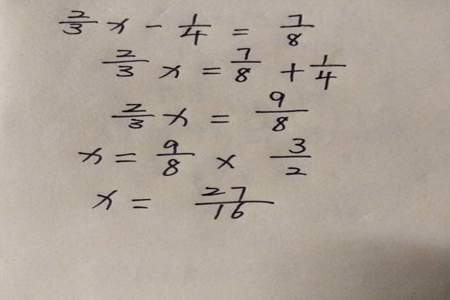 2/3 x - 1/4 = 7/8
2/3 x = 7/8 + 1/4
2/3 x = 9/8
x = 9/8 × 3/2
x = 27/16